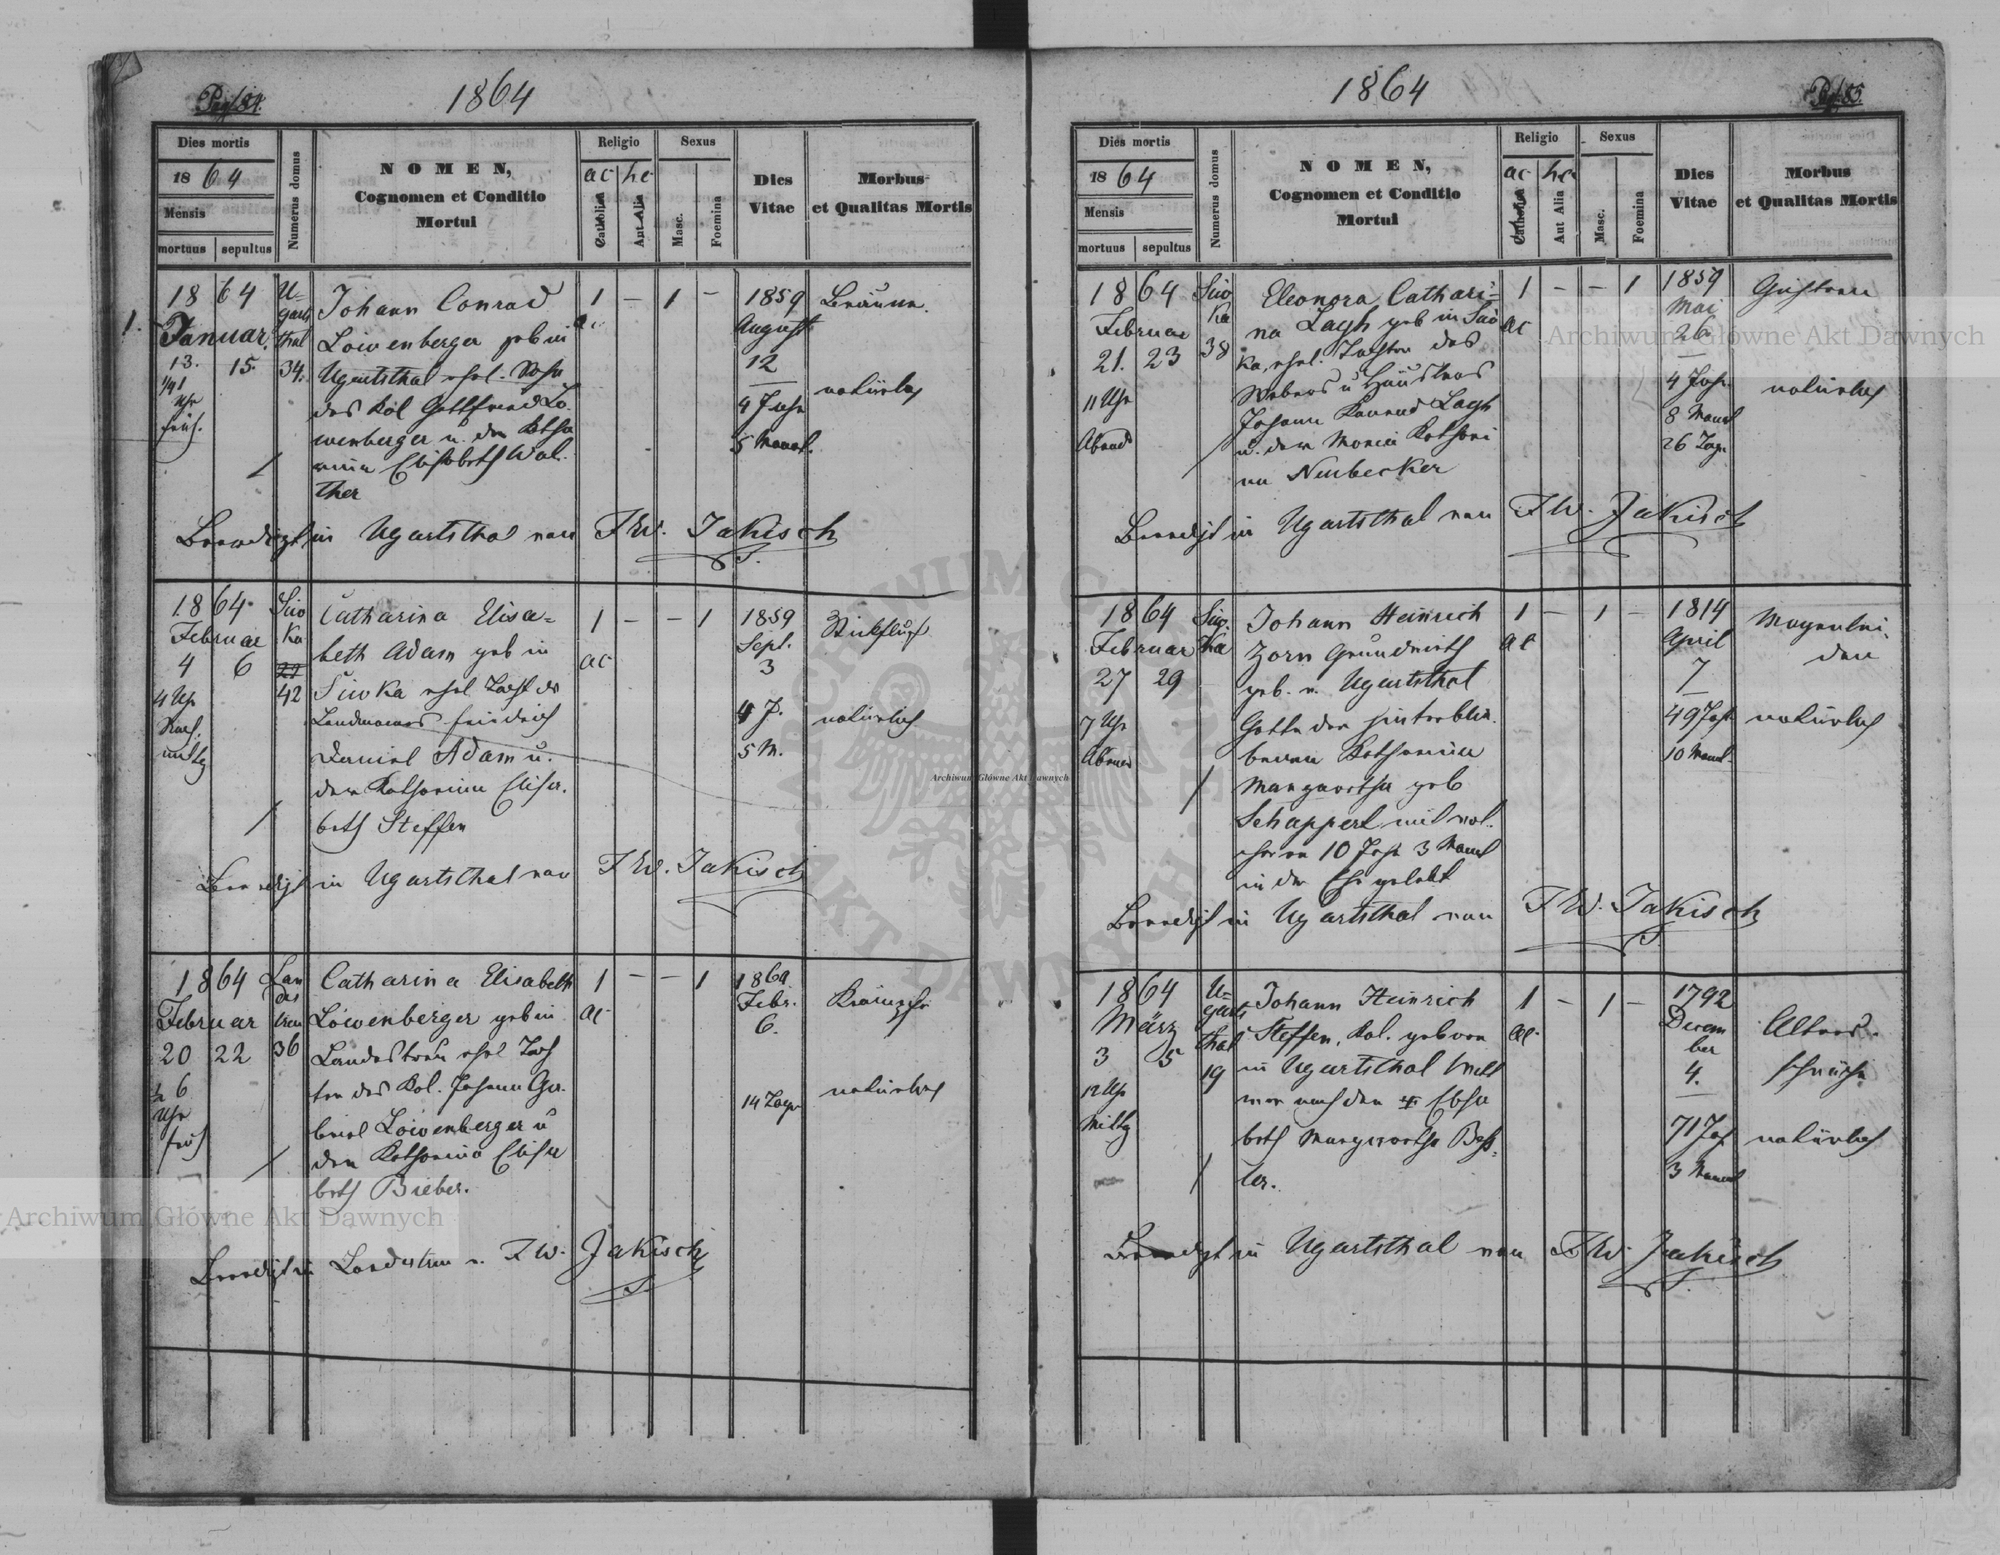 Pag. 84.
1864
Dies mortis
1864
Mensis
mortuus
sepultus
Numerus domus
NOMEN,
Cognomen et Conditio
Mortui
Religio
ac hc
Catholica
Aut Alia
Sexus
Masc.
Foemina
Dies
Vitae
Morbus
et Qualitas Mortis
1.
1864
Januar.
13. 15.
Uhr
früh.
U=
garts
thal
34.
Johann Conrad
Löwenberger geb in
Ugartsthal ehel. Sohn
des Kol Gottfried Lö
wenberger u. der Katha
rina Elisabeth Wal.
ther
1 – 1 –
ac
1859
August
12
4 Jahr
5 Monat.
Bräune.
natürlich
Beerdigt in Ugartsthal von F.W. Jakisch
1864
Februar
4 6
4 Uhr
Nach,
mittg
Siw
ka
42
Catharina Elisa=
beth Adam geb in
Siwka ehel Tocht des
Landmannes Friedrich
Daniel Adam u.
der Katharina Elisa.
beth Steffen
1 – – 1
ac
1859
Sept.
3
4 J.
5 M.
Stickfluß
natürlich
Beerdigt in Ugartsthal von F.W. Jakisch
1864
Februar
20 22
½ 6
Uhr
früh
Lan
des
treu
36
Catharina Elisabeth
Löwenberger geb in
Landestreu ehel Toch
ter des Kol. Johann Ga.
briel Löwenberger u
der Katharina Elisa
beth Bieber.
1 – – 1
ac
1864
Febr.
6.
14 Tage
Krämpfe
natürlich
Beerdigt in Landestreu v. F.W. Jakisch
Pag. 85.
1864
Dies mortis
1864
Mensis
mortuus
sepultus
Numerus domus
NOMEN,
Cognomen et Conditio
Mortui
Religio
ac hc
Catholica
Aut Alia
Sexus
Masc.
Foemina
Dies
Vitae
Morbus
et Qualitas Mortis
1864
Februar
21. 23
11 Uhr
Abends
Siw
ka
38
Eleonora Cathari=
na Lagh geb in Siw
ka, ehel. Tochter des
Webers u Häuslers
Johann Konrad Lagh
u. der Maria Kathari
na Neubecker
1 – – 1
ac
1859
Mai
26
4 Jahr
8 Monat
26 Tage
Husten
natürlich
Beerdigt in Ugartsthal von F.W. Jakisch
1864
Februar
27 29
7 Uhr
Abends
Siw.
ka
Johann Heinrich
Zorn Grundwirth
geb. v. Ugartsthal
Gatte der hinterblie.
benen Katharina
Margaretha geb
Schappert mit wel.
cher er 10 Jahr 3 Monat
in der Ehe gelebt
1 – 1 –
ac
1814
April
7
49 Jahr
10 Monat
Magenlei.
den
natürlich
Beerdigt in Ugartsthal von F.W. Jakisch
1864
März
3 5
12 Uhr
Mittg
U=
garts
thal
19
Johann Heinrich
Steffen, Kol. geboren
in Ugartsthal Witt
wer nach der Elisa
beth Margaretha Beß,
ler.
1 – 1 –
ac
1792
Decem
ber
4.
71 Jahr
3 Monat
Alters.
schwäche
natürlich
Beerdigt in Ugartsthal von F.W. Jakisch
Archiwum Główne Akt Dawnych
Archiwum Główne Akt Dawnych
Archiwum Główne Akt Dawnych
ARCHIWUM GŁÓWNE AKT DAWNYCH